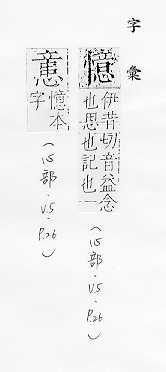 字彙
憶
伊昔切音益念
也思也記也一
(心部.V5.P.26)
憶本
字
(心部.V5.P.26)